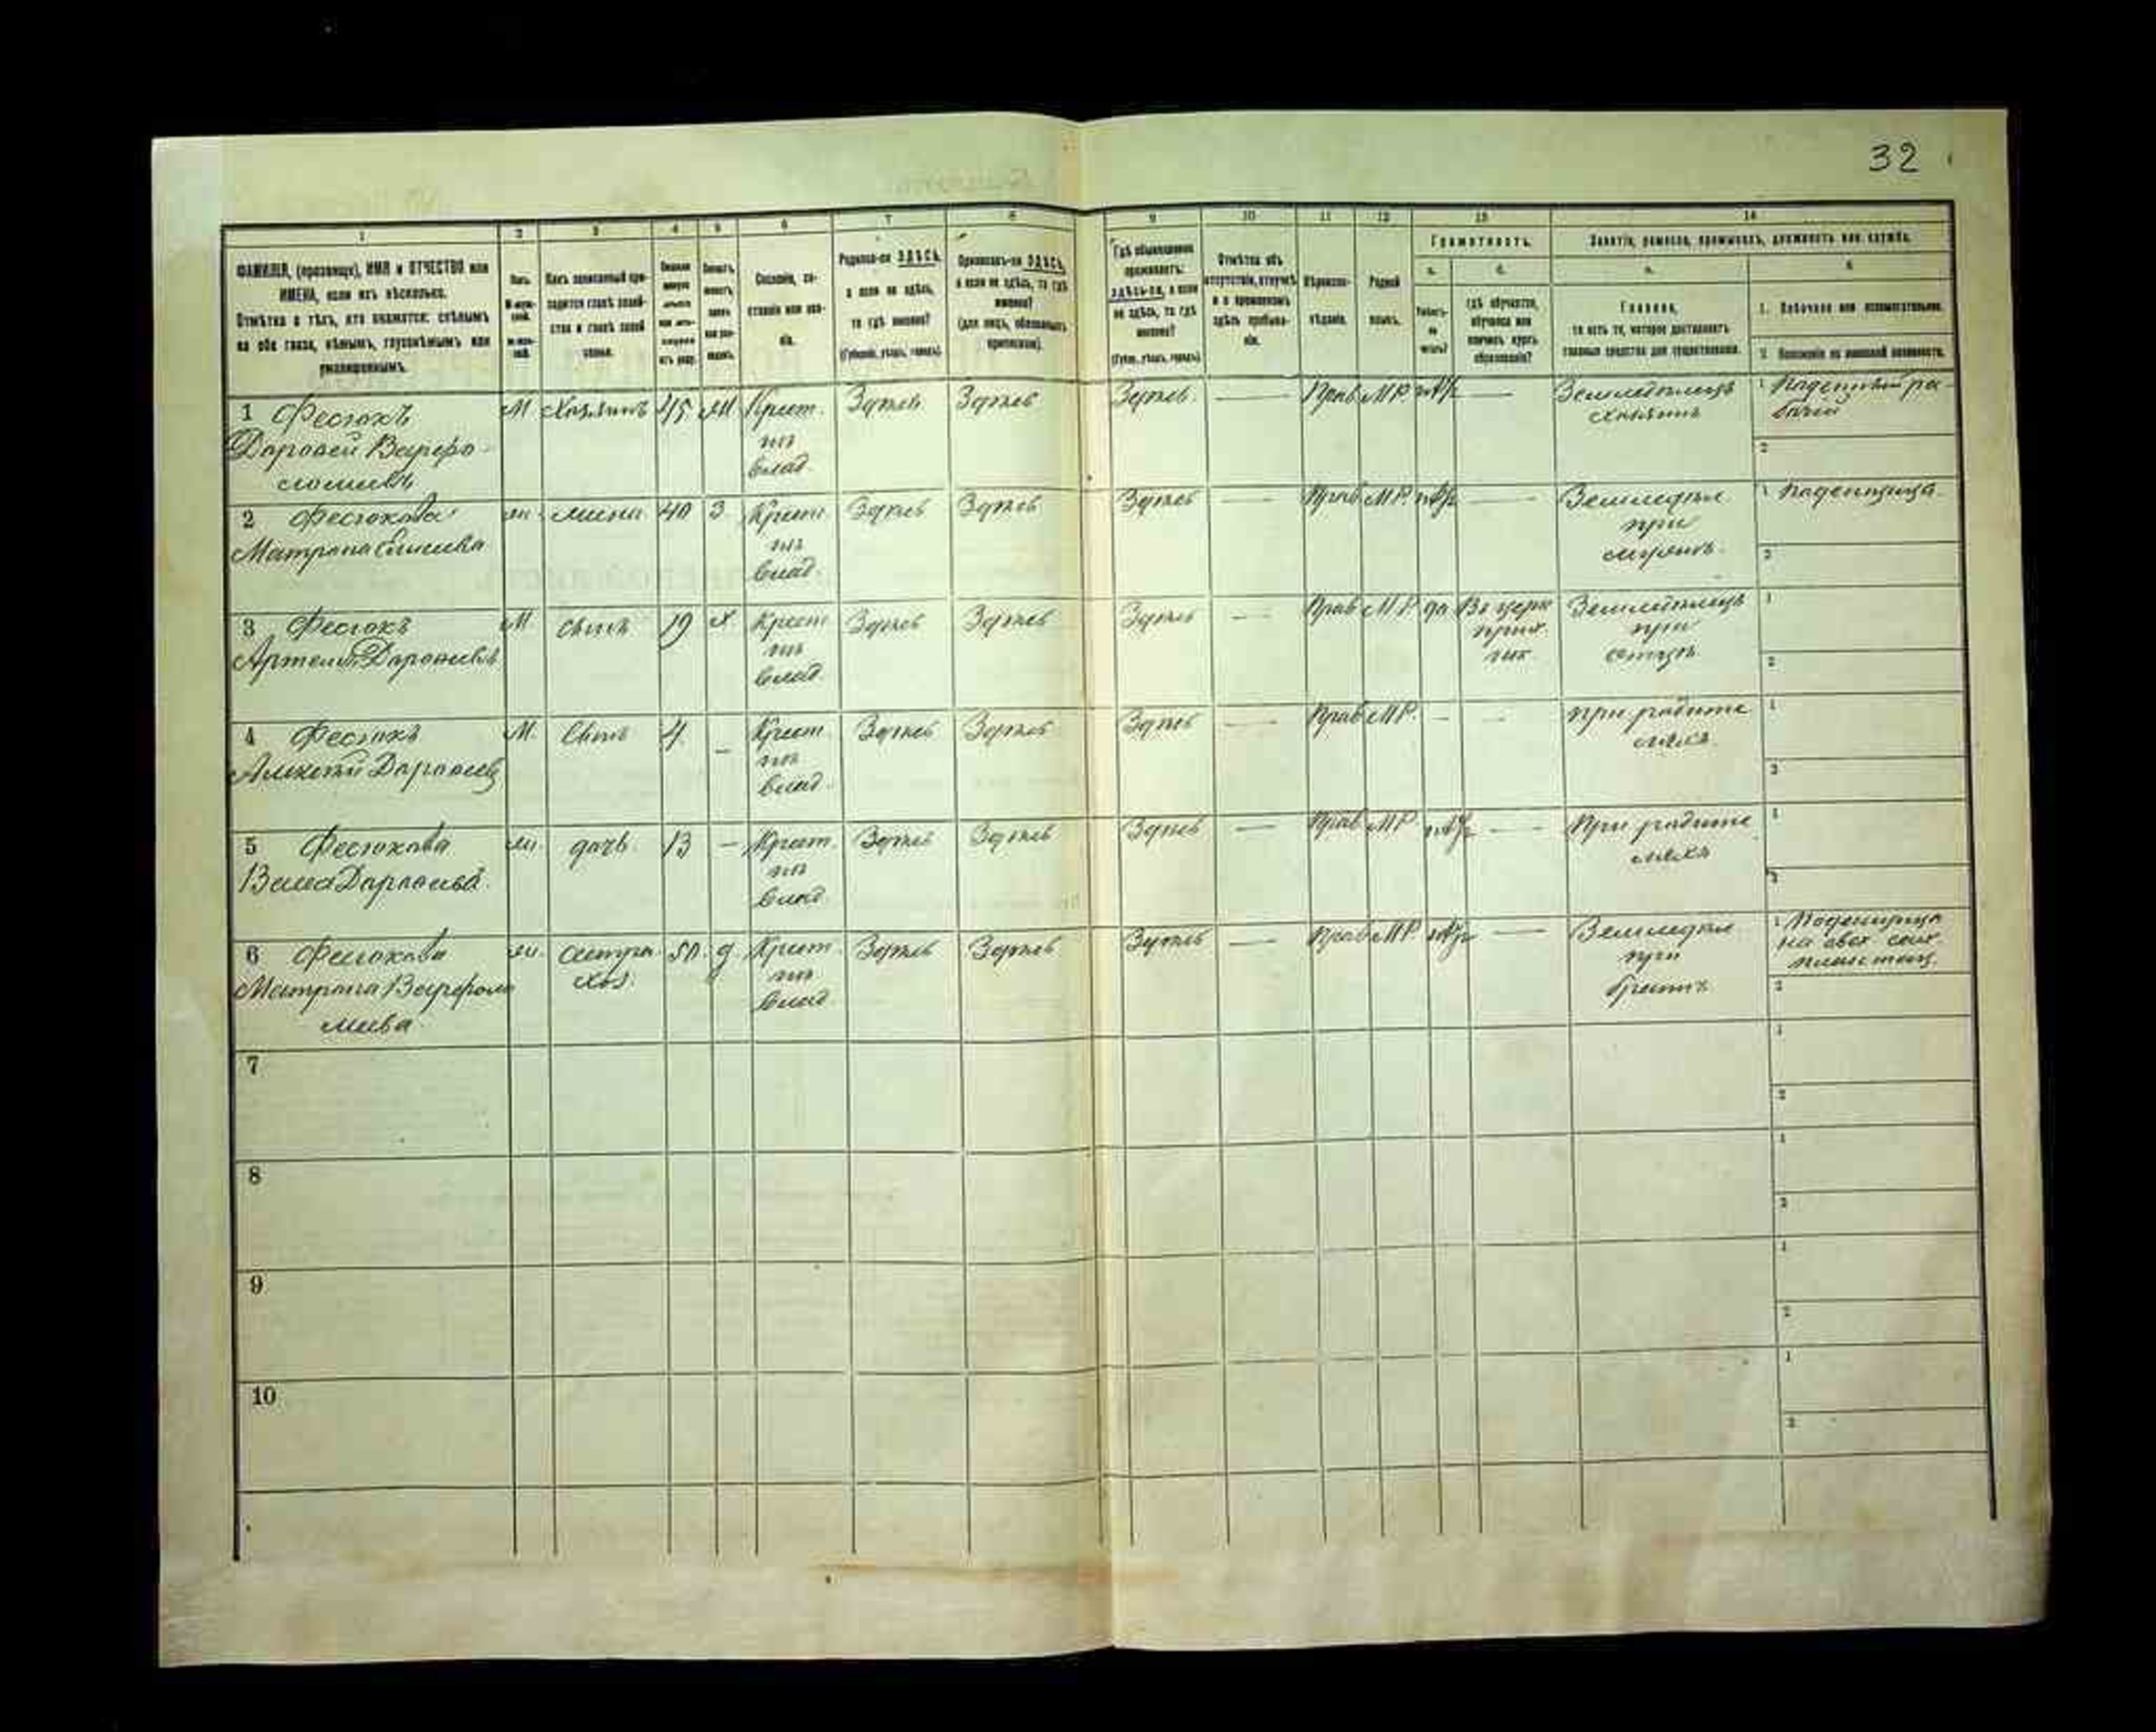 32
1 2 3 4 5 6 7 8 9 10 11 12 13 14
ФАМИЛІЯ, (прозвище), ИМЯ и ОТЧЕСТВО или
ИМЕНА, если ихъ нѣсколько.
Отмѣтка о тѣхъ, кто окажется: слѣпымъ
на оба глаза, нѣмымъ, глухонѣмымъ или
умалишеннымъ.
Полъ.
Какъ записанный при-
ходится главѣ хозяй-
ства и главѣ своей
семьи.
Сословіе, со-
стояніе или зва-
ніе.
Родился-ли ЗДѢСЬ,
а если не здѣсь,
то гдѣ именно?
(Губернія, уѣздъ, городъ).
Приписанъ-ли ЗДѢСЬ,
а если не здѣсь, то гдѣ
именно?
(для лицъ, обязанныхъ
припискою).
Гдѣ обыкновенно
проживаетъ:
здѣсь-ли, а если
не здѣсь, то гдѣ
именно?
(Губ., уѣздъ, городъ).
Отмѣтка объ
отсутствіи, отлучкѣ
и о временномъ
здѣсь пребыва-
ніи.
Вѣроиспо-
вѣданіе.
Родной
языкъ.
Грамотность.
а. б.
Умѣетъ-
ли
читать?
гдѣ обучается,
обучался или
кончилъ курсъ
образованія?
Занятіе, ремесло, промыселъ, должность или служба.
а. б.
Главное,
то есть то, которое доставляетъ
главныя средства для существованія.
1. Побочное или вспомогательное.
2. Положеніе по воинской повинности.
1 Фесюкъ
Дорофей Варфо-
ломеевъ
М Хозяинъ 45 М Крест.
изъ
влад.
Здѣсь Здѣсь Здѣсь — Прав М.Р. нѣтъ — Земледѣлецъ
хозяинъ
1 Поденный ра-
бочій
2
2 Фесюкова
Матрона
жена 40 З Крест.
изъ
влад.
Здѣсь Здѣсь Здѣсь — Прав М.Р. нѣтъ — Земледѣл
при
мужѣ.
1 Поденщица
2
3 Фесюкъ
Артемій Дорофеевъ
М сынъ 19 Х Крест
изъ
влад.
Здѣсь Здѣсь Здѣсь — Прав М.Р. да Въ церк
прих.
шк.
Земледѣлецъ
при
отцѣ.
1
2
4 Фесюкъ
Алексѣй Дорофеев
М. Сынъ 4 — Крест.
изъ
влад.
Здѣсь Здѣсь Здѣсь — Прав М.Р. — — при родите
ляхъ.
1
2
5 Фесюкова
Дорофеева.
дочь. 13 — Крест.
изъ
влад.
Здѣсь Здѣсь Здѣсь — Прав М.Р. нѣтъ — При родите
ляхъ
1
2
6 Фесюкова
Матрона Варфоло
меева.
сестра
хоз.
50. д Крест.
изъ
влад
Здѣсь Здѣсь Здѣсь — Прав М.Р. нѣтъ — Земледѣл
при
братѣ.
1 Поденщица
на
2
7
1
2
8
1
2
9
1
2
10
1
2